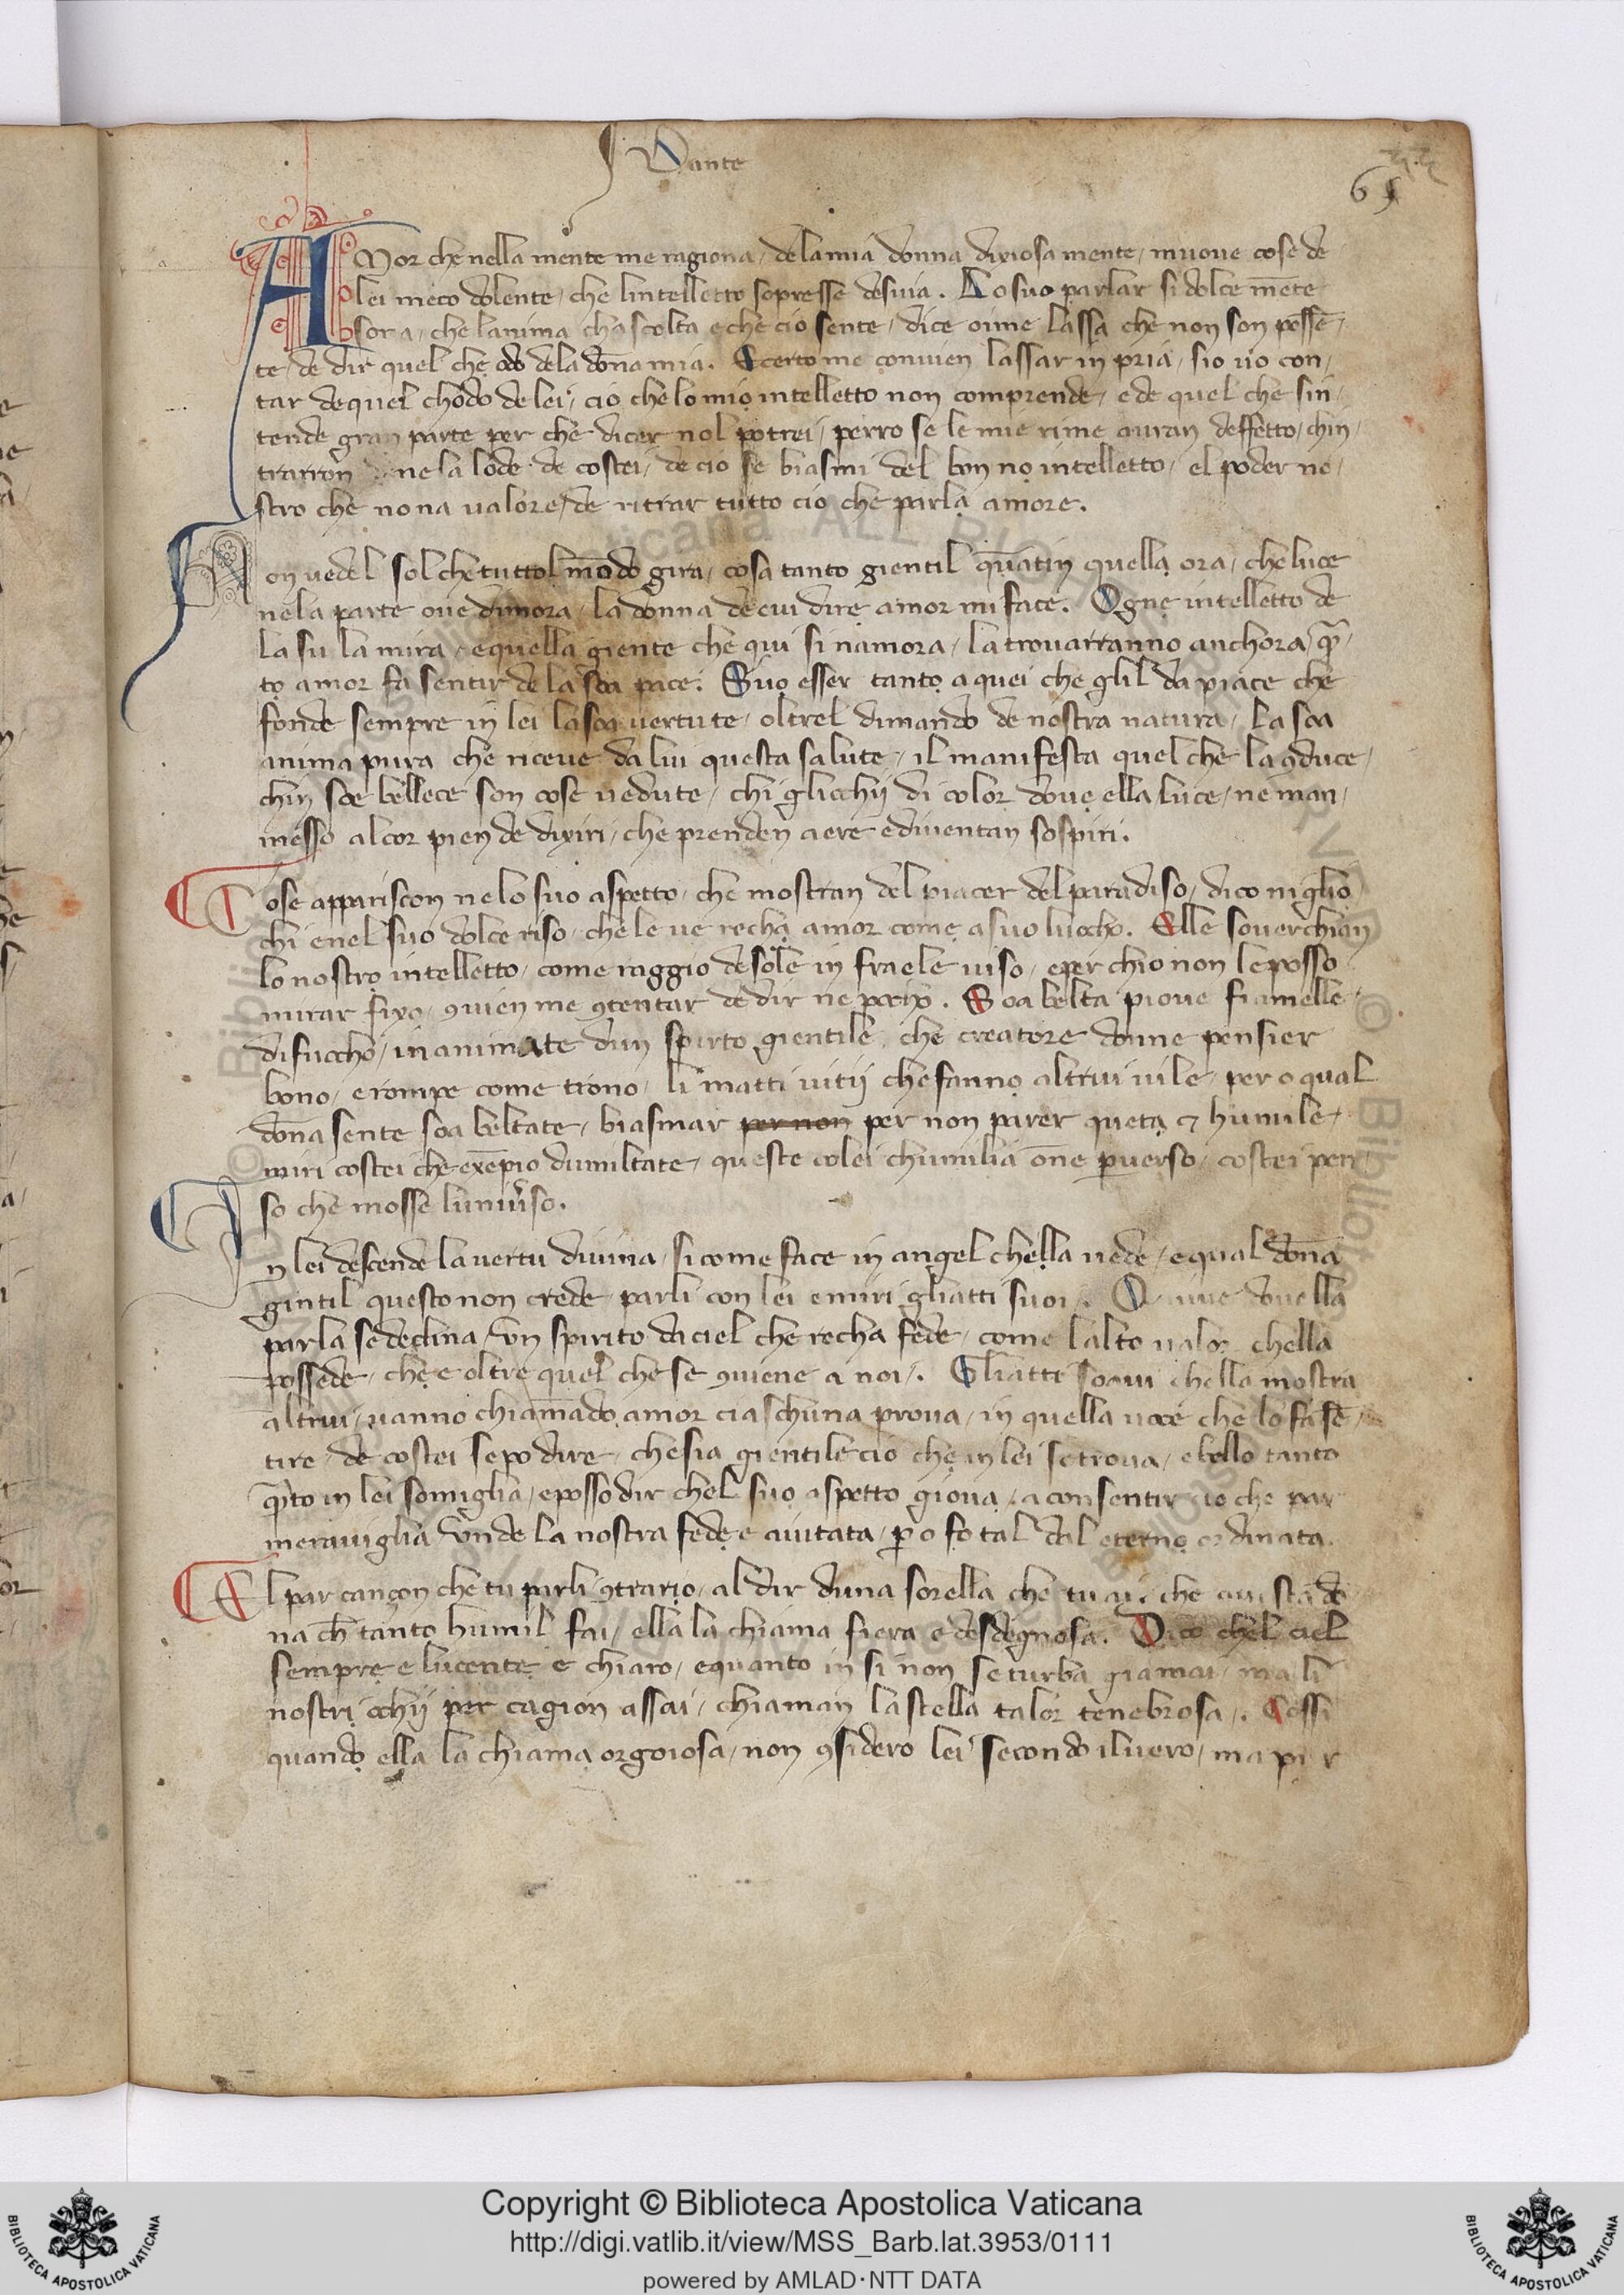 Dante
65
AMor che nella mente me ragiona / de la mia donna dixiosa mente / muoue cose de
lei meco dolente / che lintelletto sopresse desuia. Lo suo parlar si dolce mēte
sona / che lanima chascolta e che cio sente / dice oime lassa che non son possē /
te / de dir quel che odo de la dōna mia. E certo me conuien lassar in pria / sio uo con /
tar de quel chodo de lei / cio che lo mio intelletto non comprende / e de quel che sin /
tende gran parte per che dicer nol potrei / perro se le mie rime auran deffetto / chin /
trarron ne la lode de costei / de cio se biasmi del bon no intelletto / el poder no /
stro che nona ualore / de ritrar tutto cio che parla amore.
Non uedel sol che tuttol mōdo gira / cosa tanto gientil quātin quella ora / che luce
ne la parte oue dimora / la donna de cui dire amor mi face. Ogne intelletto de
la su la mira / e quella giente che qui si namora / la trouarranno anchora / quā /
to amor fa sentir de la soa pace. Suo esser tanto a quei che glil da piace che
fonde sempre in lei la soa uertute / oltrel dimando de nostra natura / La soa
anima pura che riceue da lui questa salute / il manifesta quel che la ꝯduce /
chin soe bellece son cose uedute / chi gliocchij di color doue ella luce / ne man /
messo al cor pien de dixiri / che prenden aere e diuentan sospiri.
Cose appariscon ne lo suo aspetto / che mostran del piacer del paradiso / dico niglio
chi e nel suo dolce riso / che le ue recha amor come a suo luocho. Elle souerchian
lo nostro intelletto / come raggio de sole in fraele uiso / e per chio non le posso
mirar fixo / ꝯuien me ꝯtentar de dir ne pocho. Soa belta pioue fiamelle
di fuocho / inanimate dun spirto gientile / che creatore donne pensier
bono / e rompe come trono / li matti uitij che fanno altrui uile / pero qual
dōna sente soa beltate / biasmar per non per non parer queta ⁊ humile /
miri costei che exēpio dumiltate / queste colei chumilia ōne puerso / costei pen
so che mosse luniuerso.
In lei descende la uertu diuina / si come face in angel chella uede / e qual dōna
gintil questo non crede / parli con lei e miri gliatti suoi. Quiue douella
parla se declina / un spirito da ciel che recha fede / come lalto ualor chella
possede / che e oltre quel che se ꝯuiene a noi. Gliatti soaui chella mostra
altrui / uanno chiamādo amor ciaschuna proua / in quella uoce che lo fa sē /
tire / de costei se po dire / che sia gientile cio che in lei se troua / e bello tanto
quāto in lei somiglia / e posso dir chel suo aspetto gioua / a consentir cio che par
merauiglia / unde la nostra fede e aiutata / po fo tal dal eterno ordinata.
El par cançon che tu parli ꝯtrario / al dir duna sorella che tu ai / che questa dō
na ch tanto humil fai / ella la chiama fiera e desdegnosa. Dico chel ciel
sempre e lucente e chiaro / e quanto in si non se turba giamai / ma li
nostri occhij per cagion assai / chiaman la stella talor tenebrosa. Cossi
quando ella la chiama orgoiosa / non ꝯsidero lei secondo il uero / ma per
Copyright © Biblioteca Apostolica Vaticana
http://digi.vatlib.it/view/MSS_Barb.lat.3953/0111
powered by AMLAD·NTT DATA
BIBLIOTECA APOSTOLICA VATICANA
BIBLIOTECA APOSTOLICA VATICANA